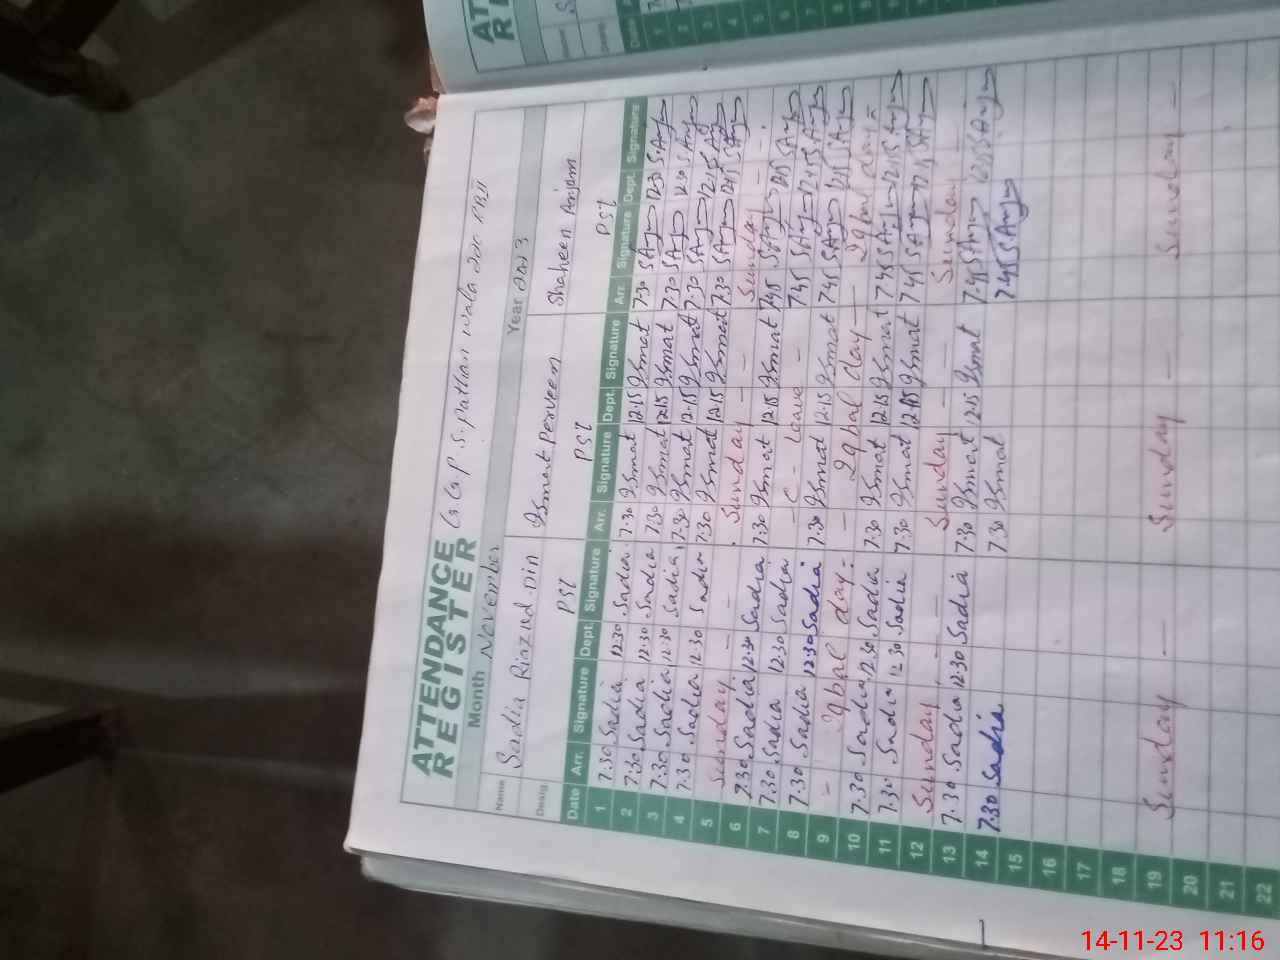 ATTENDANCE
REGISTER
G.G.P.S. Pathan wala
Month November Year 2023
Name Sadia Riazud-Din 9smat Perveen Shaheen Anjam
Desig. PST PST PST
Date Arr. Signature Dept. Signature Arr. Signature Dept. Signature Arr. Signature Dept. Signature
1 7:30 Sadia 12:30 Sadia 7:30 9smat 12:15 9smat 7:30 SAnjum 12:30 SAnjum
2 7:30 Sadia 12:30 Sadia 7:30 9smat 12:15 9smat 7:30 SAnjum 12:30 SAnjum
3 7:30 Sadia 12:30 Sadia 7:30 9smat 12:15 9smat 7:30 SAnjum 12:15 SAnjum
4 7:30 Sadia 12:30 Sadia 7:30 9smat 12:15 9smat 7:30 SAnjum 12:15 SAnjum
5 Sunday - - Sunday - - Sunday - -
6 7:30 Sadia 12:30 Sadia 7:30 9smat 12:15 9smat 7:45 SAnjum 12:15 SAnjum
7 7:30 Sadia 12:30 Sadia - Leave - 7:45 SAnjum 12:15 SAnjum
8 7:30 Sadia 12:30 Sadia 7:30 9smat 12:15 9smat 7:45 SAnjum 12:15 SAnjum
9 - 9qbal day - - 9qbal day - 9qbal day -
10 7:30 Sadia 12:30 Sadia 7:30 9smat 12:15 9smat 7:45 SAnjum 12:15 SAnjum
11 7:30 Sadia 12:30 Sadia 7:30 9smat 12:15 9smat 7:45 SAnjum 12:15 SAnjum
12 Sunday - - Sunday - - Sunday -
13 7:30 Sadia 12:30 Sadia 7:30 9smat 12:15 9smat 7:45 SAnjum 12:15 SAnjum
14 7:30 Sadia 7:30 9smat 7:45 SAnjum
15
16
17
18
19 Sunday - Sunday - Sunday -
20
21
22
14-11-23 11:16